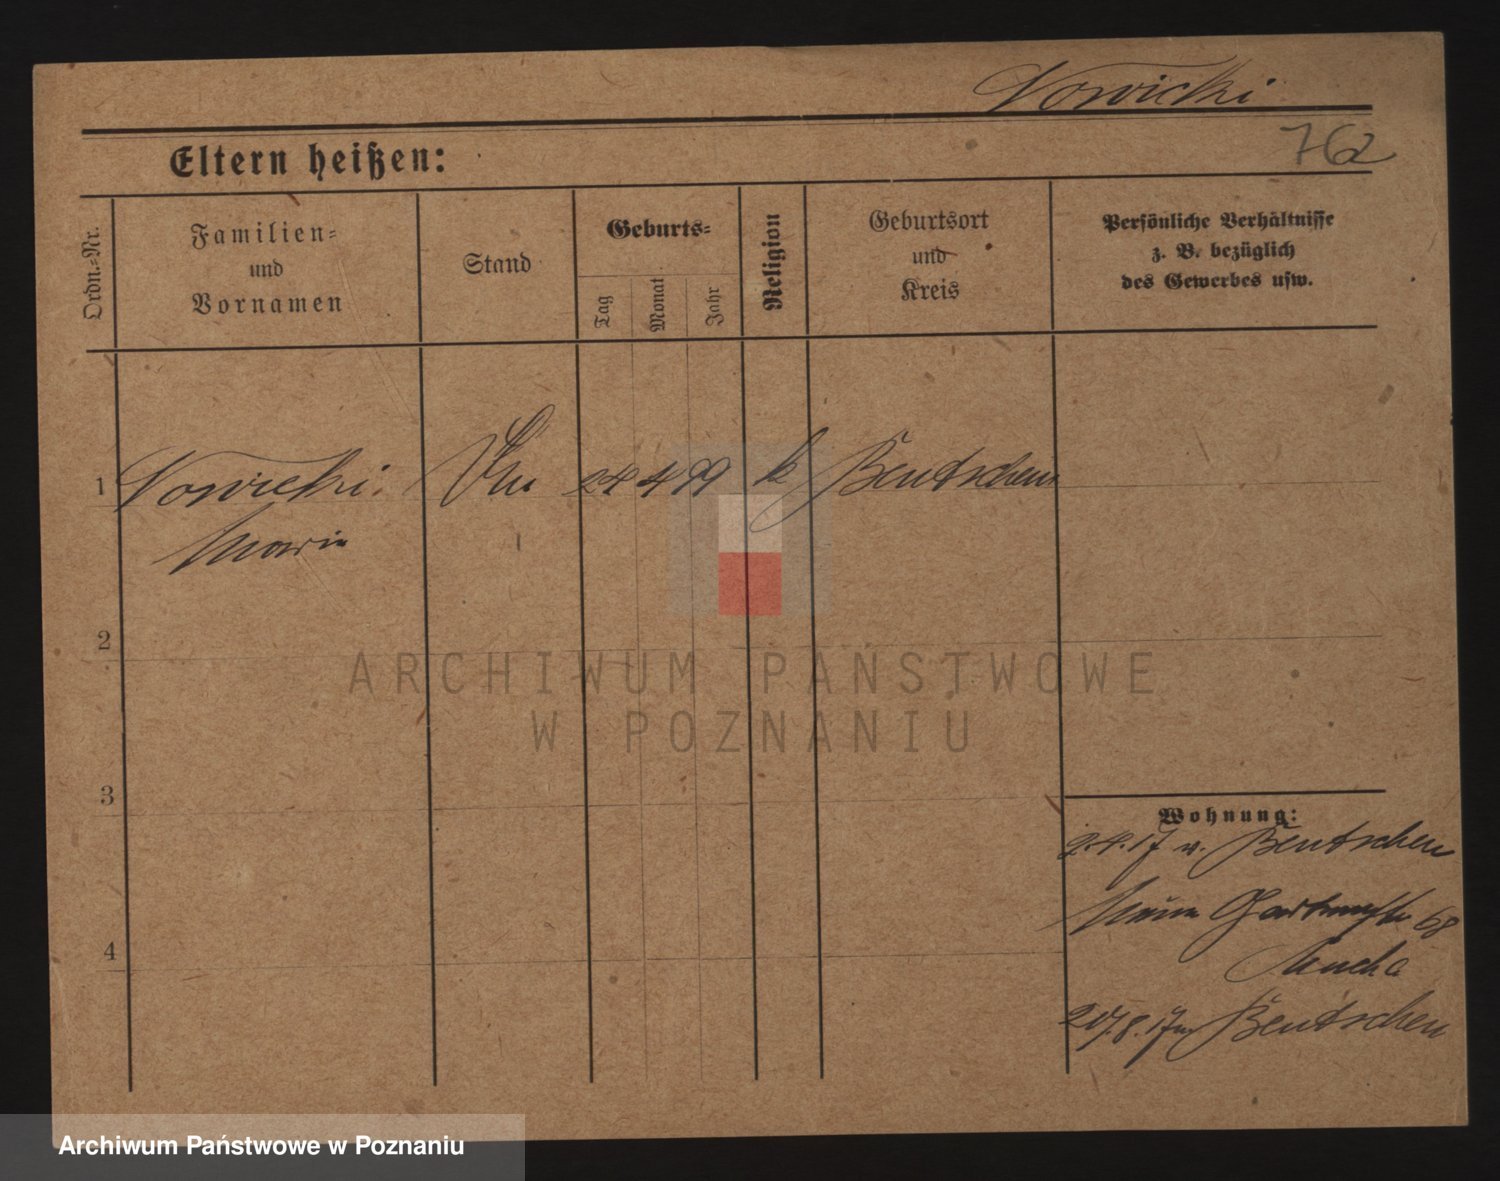 Nowicki
762
Eltern heißen:
Ordn.-Nr.
Familien-
und
Vornamen
Stand
Geburts-
Tag
Monat
Jahr
Religion
Geburtsort
und
Kreis
Persönliche Verhältnisse
z. B. bezüglich
des Gewerbes usw.
1 Nowicki 24 4 99 k Bentschen
Maria
2
ARCHIWUM PAŃSTWOWE
W POZNANIU
3
Wohnung:
2.4.17 v. Bentschen
68
Mucha
4
8.17 n Bentschen
Archiwum Państwowe w Poznaniu